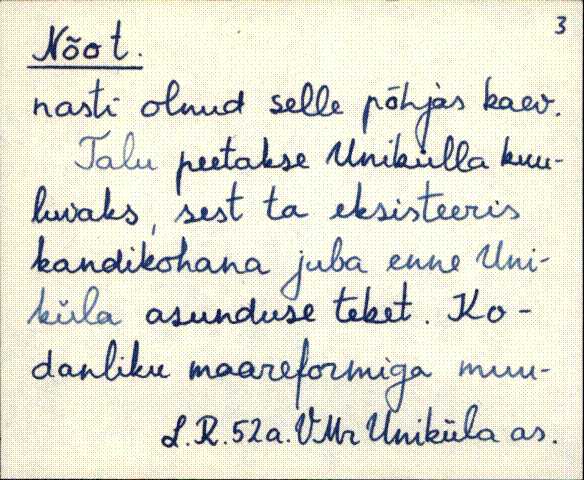 3
Nõo t.
nasti olnud selle põhjas kaev.
Talu peetakse Uniküla kuu-
luvaks, sest ta eksisteeris
kandikohana juba enne Uni-
küla asunduse teket. Ko-
danliku maareformiga muu-
L.R. 52a. VMr Uniküla as.